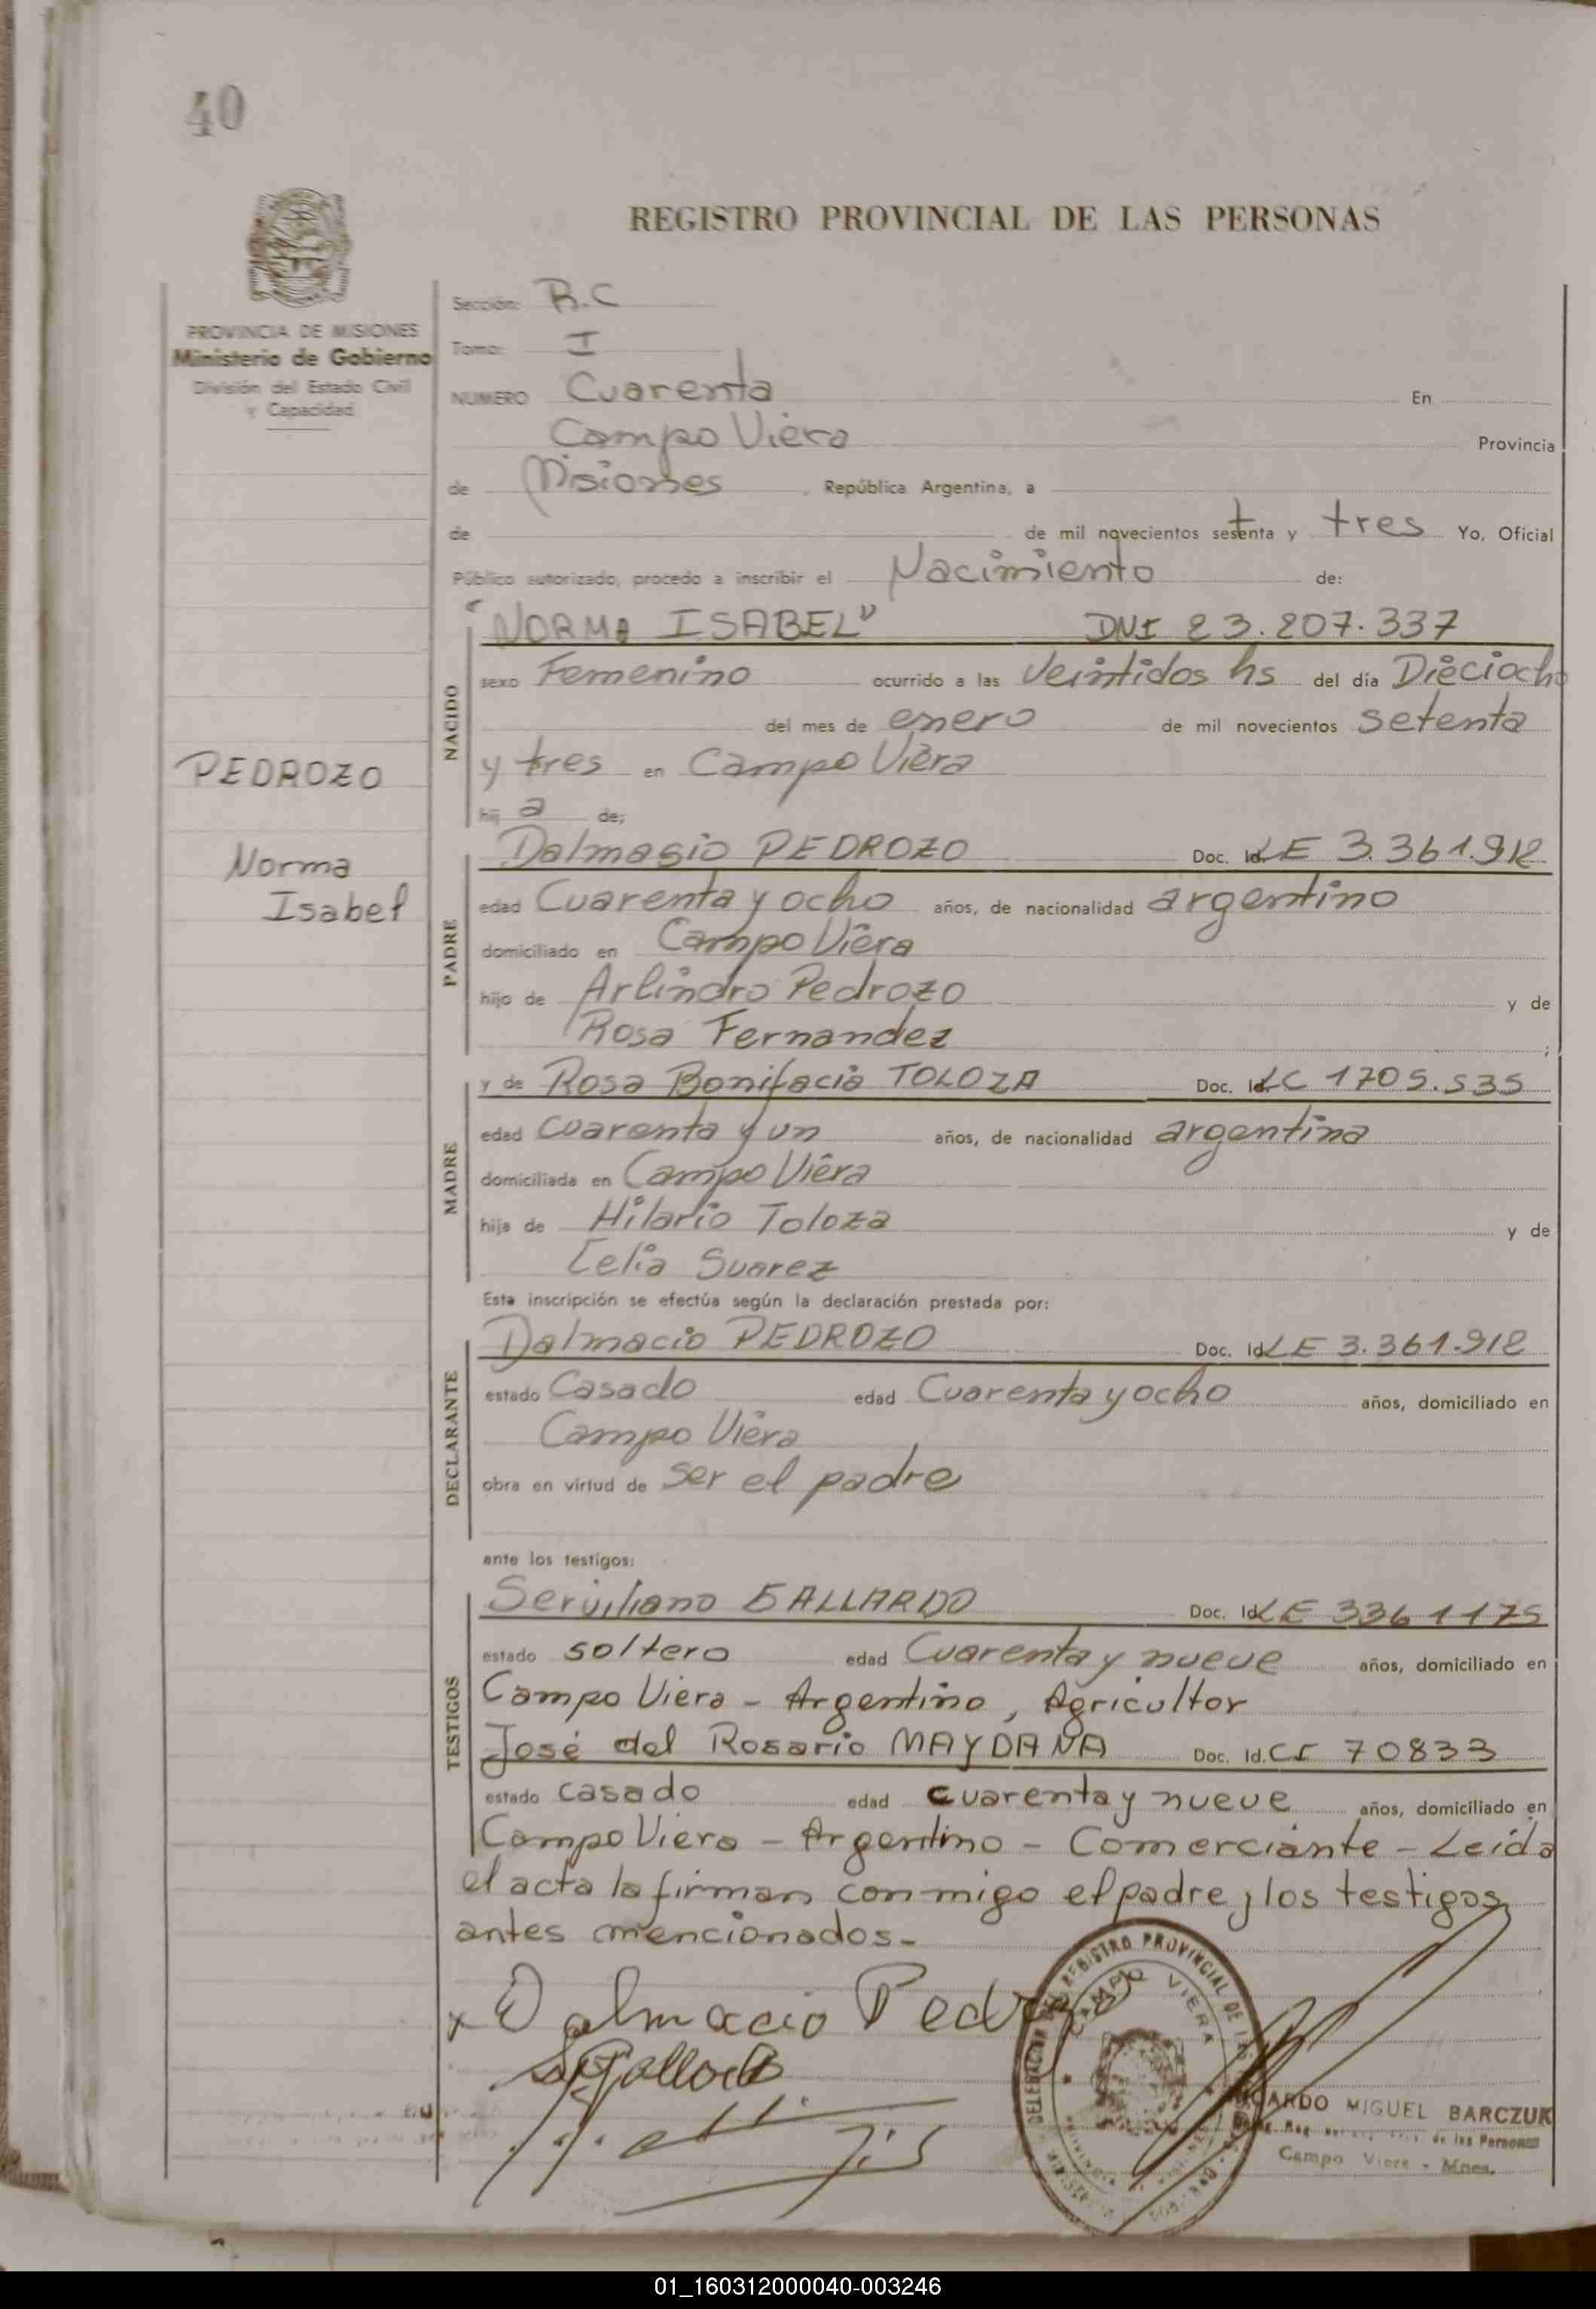 40
REGISTRO PROVINCIAL DE LAS PERSONAS
PROVINCIA DE MISIONES
Ministerio de Gobierno
División del Estado Civil
y Capacidad
Sección: R.C
Tomo: I
NUMERO Cuarenta En
Campo Viera Provincia
de Misiones, República Argentina, a
de de mil novecientos setenta y tres Yo, Oficial
Público autorizado, procedo a inscribir el Nacimiento de:
"NORMA ISABEL" DNI 23.207.337
NACIDO
sexo Femenino ocurrido a las Veintidos hs del día Dieciocho
del mes de enero de mil novecientos setenta
y tres en Campo Viera
hij a de;
PEDROZO
Norma
Isabel
PADRE
Dalmasio PEDROZO Doc. Id. LE 3.361.912
edad Cuarenta y ocho años, de nacionalidad argentino
domiciliado en Campo Viera
hijo de Arlindro Pedrozo y de
Rosa Fernandez ;
MADRE
y de Rosa Bonifacia TOLOZA Doc. Id. LC 1705.535
edad cuarenta y un años, de nacionalidad argentina
domiciliada en Campo Viera
hija de Hilario Toloza y de
Celia Suarez
Esta inscripción se efectúa según la declaración prestada por:
DECLARANTE
Dalmacio PEDROZO Doc. Id. LE 3.361.912
estado Casado edad Cuarenta y ocho años, domiciliado en
Campo Viera
obra en virtud de ser el padre
ante los testigos:
TESTIGOS
Serviliano GALLARDO Doc. Id. LE 3361175
estado soltero edad Cuarenta y nueve años, domiciliado en
Campo Viera - Argentino, Agricultor
José del Rosario MAYDANA Doc. Id. CI 70833
estado casado edad cuarenta y nueve años, domiciliado en
Campo Viera - Argentino - Comerciante - Leida
el acta la firman conmigo el padre y los testigos
antes mencionados.-
x Dalmacio Pedrozo
S Gallardo
REGISTRO PROVINCIAL DE
CAMPO VIERA
RICARDO MIGUEL BARCZUK
de las Personas
Campo Viera - Mnes.
01_160312000040-003246